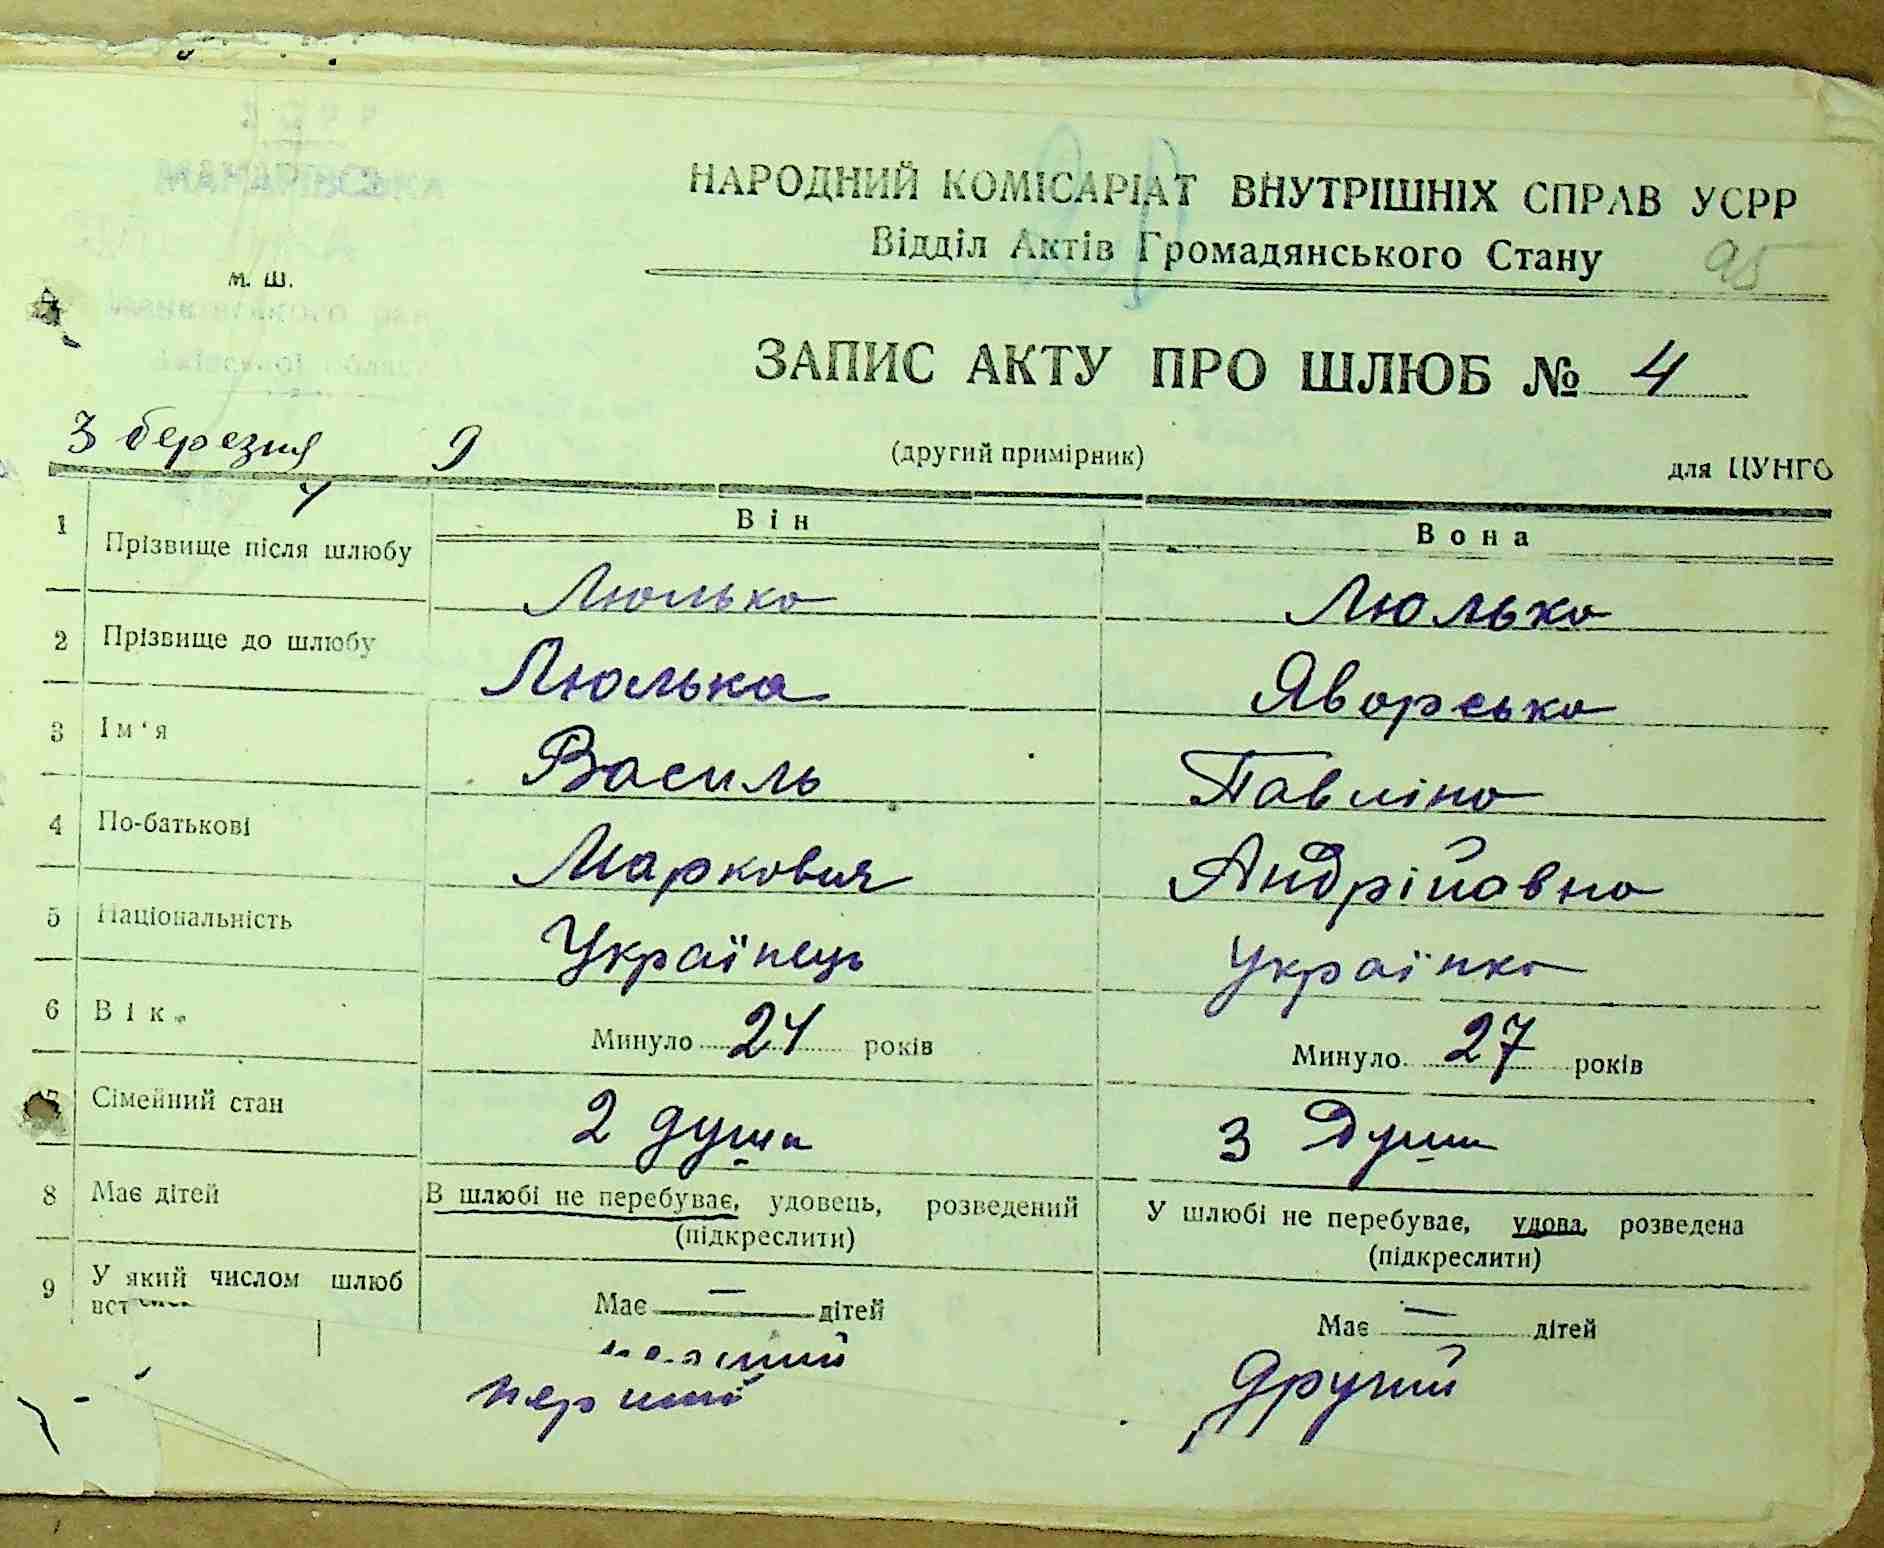 НАРОДНИЙ КОМІСАРІАТ ВНУТРІШНІХ СПРАВ УСРР
Відділ Актів Громадянського Стану 95
м. Ш.
ЗАПИС АКТУ ПРО ШЛЮБ № 4
3 березня
(другий примірник) для ЦУНГО
Він Вона
1 Прізвище після шлюбу Люлько Люлько
2 Прізвище до шлюбу Люлька Яворсько
3 Ім'я Василь Павліна
4 По-батькові Маркович Андрійовна
5 Національність Українець Українка
6 Вік Минуло 24 років Минуло 27 років
Сімейний стан 2 душа 3 Души
8 Має дітей В шлюбі не перебуває, удовець, розведений У шлюбі не перебуває, удова, розведена
(підкреслити) (підкреслити)
9 У який числом шлюб Має — дітей Має — дітей
перший другий